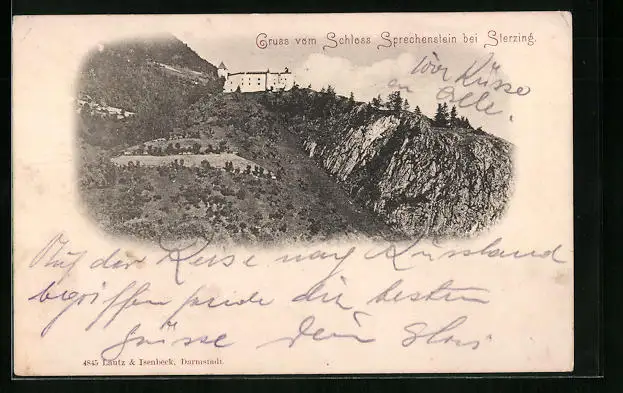 Gruss vom Schloss Sprechenstein bei Sterzing.
Küsse
an Alle.
Auf der Reise nach Russland
begriffen sende dir die besten
Grüsse dein
4845 Lautz & Isenbeck, Darmstadt.